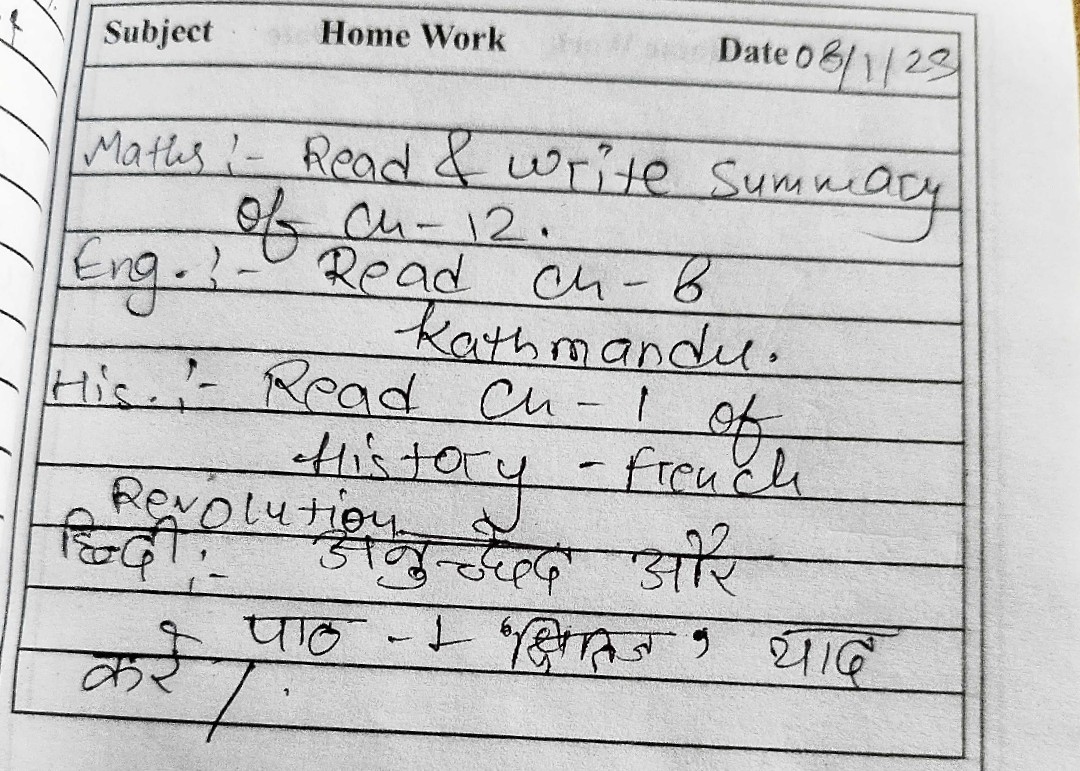 Subject Home Work Date 08/1/23
Maths :- Read & write Summary
of Ch-12.
Eng. :- Read Ch-8
Kathmandu.
His. :- Read Ch-1 of
History - French
Revolution
हिन्दी :- अनुच्छेद और
पाठ -1 'क्षितिज' याद
करें /.